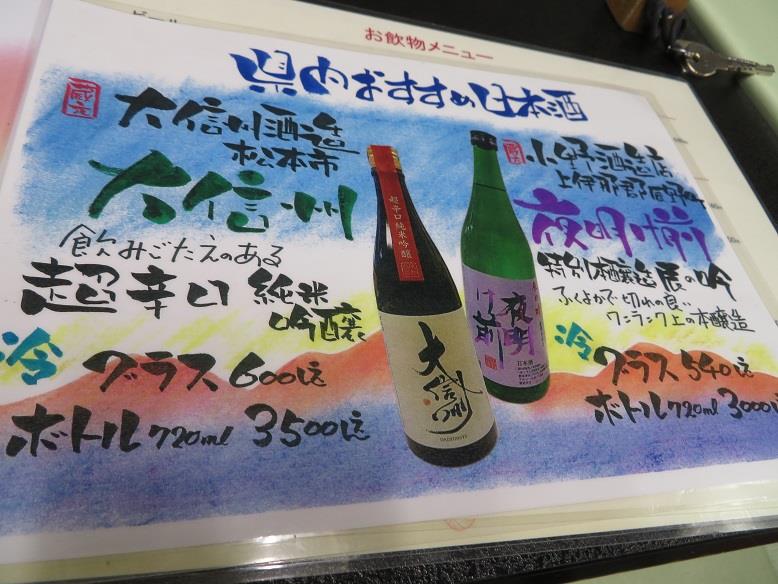 お飲物メニュー
県内おすすめ日本酒
蔵元
大信州酒造
松本市
大信州
飲みごたえのある
超辛口 純米
吟醸
冷 グラス 600円
ボトル 720ml 3500円
超辛口純米吟醸
大信州
小野酒造店
上伊那郡辰野町
夜明け前
特別本醸造 辰の吟
ふくよかで切れの良い
ワンランク上の本醸造
冷 グラス 540円
ボトル 720ml 3000
夜明け前
日本酒